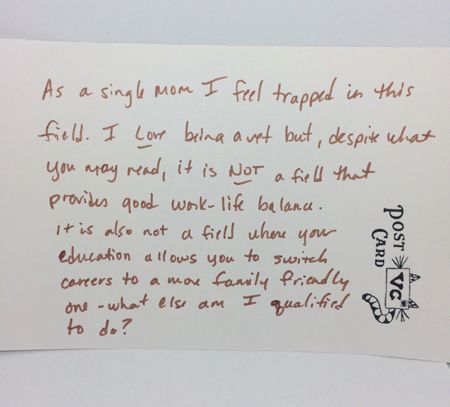 As a single mom I feel trapped in this
field. I Love being a vet but, despite what
you may read, it is NOT a field that
provides good work-life balance.
It is also not a field where your
education allows you to switch
careers to a more family friendly
one - what else am I qualified
to do?
POST
CARD
VC